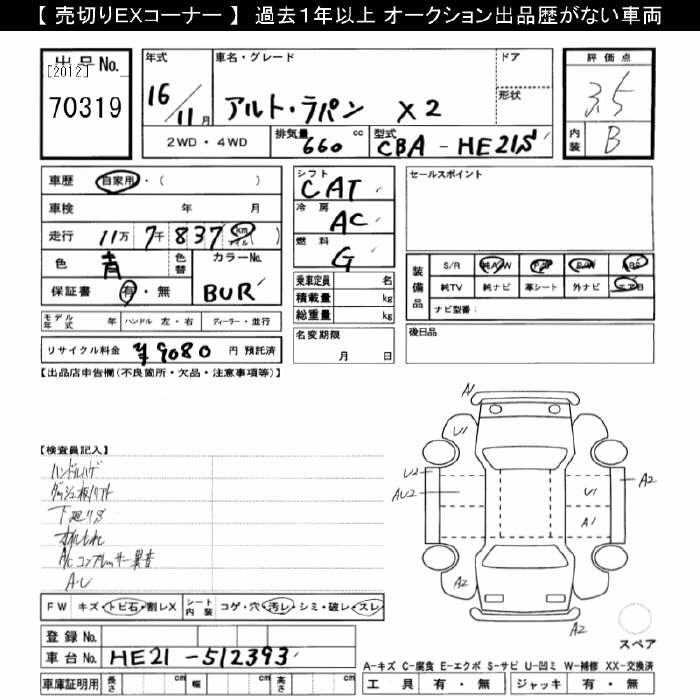 【 売切りEXコーナー 】 過去１年以上 オークション出品歴がない車両
出品No.
[2012]
70319
年式
16/11月
車名・グレード
アルト・ラパン X2
ドア
形状
2WD・4WD
排気量
660 cc
型式
CBA - HE21S
評価点
3.5
内装
B
車歴 自家用・( )
車検 年 月
走行 11万 7千 837 km マイル( )
色 青 色替
カラーNo.
BUR
保証書 有・無
モデル年式 年 ハンドル 左・右 ディーラー・並行
リサイクル料金 ¥9080 円 預託済
シフト
CAT
冷房
AC
燃料
G
乗車定員 名
積載量 kg
総重量 kg
名変期限
月 日
セールスポイント
装備品
S/R 純A/W P/S P/W ABS
純TV 純ナビ 革シート 外ナビ エアB
ナビ型番：
後日品
【出品店申告欄(不良箇所・欠品・注意事項等)】
【検査員記入】
ハンドルハゲ
下廻りS
オイルもれ
A/C コンプレッサー異音
FW キズ・トビ石・割レX シート内装 コゲ・穴・汚レ・シミ・破レ・スレ
登録No.
車台No. HE21 -512393
車庫証明用 長さ cm 幅 cm 高さ cm
A1
U1
U2
AU2
A2
U1
A1
A2
A2
A2
スペア
A-キズ C-腐食 E-エクボ S-サビ U-凹ミ W-補修 XX-交換済
工具 有・無 ジャッキ 有・無